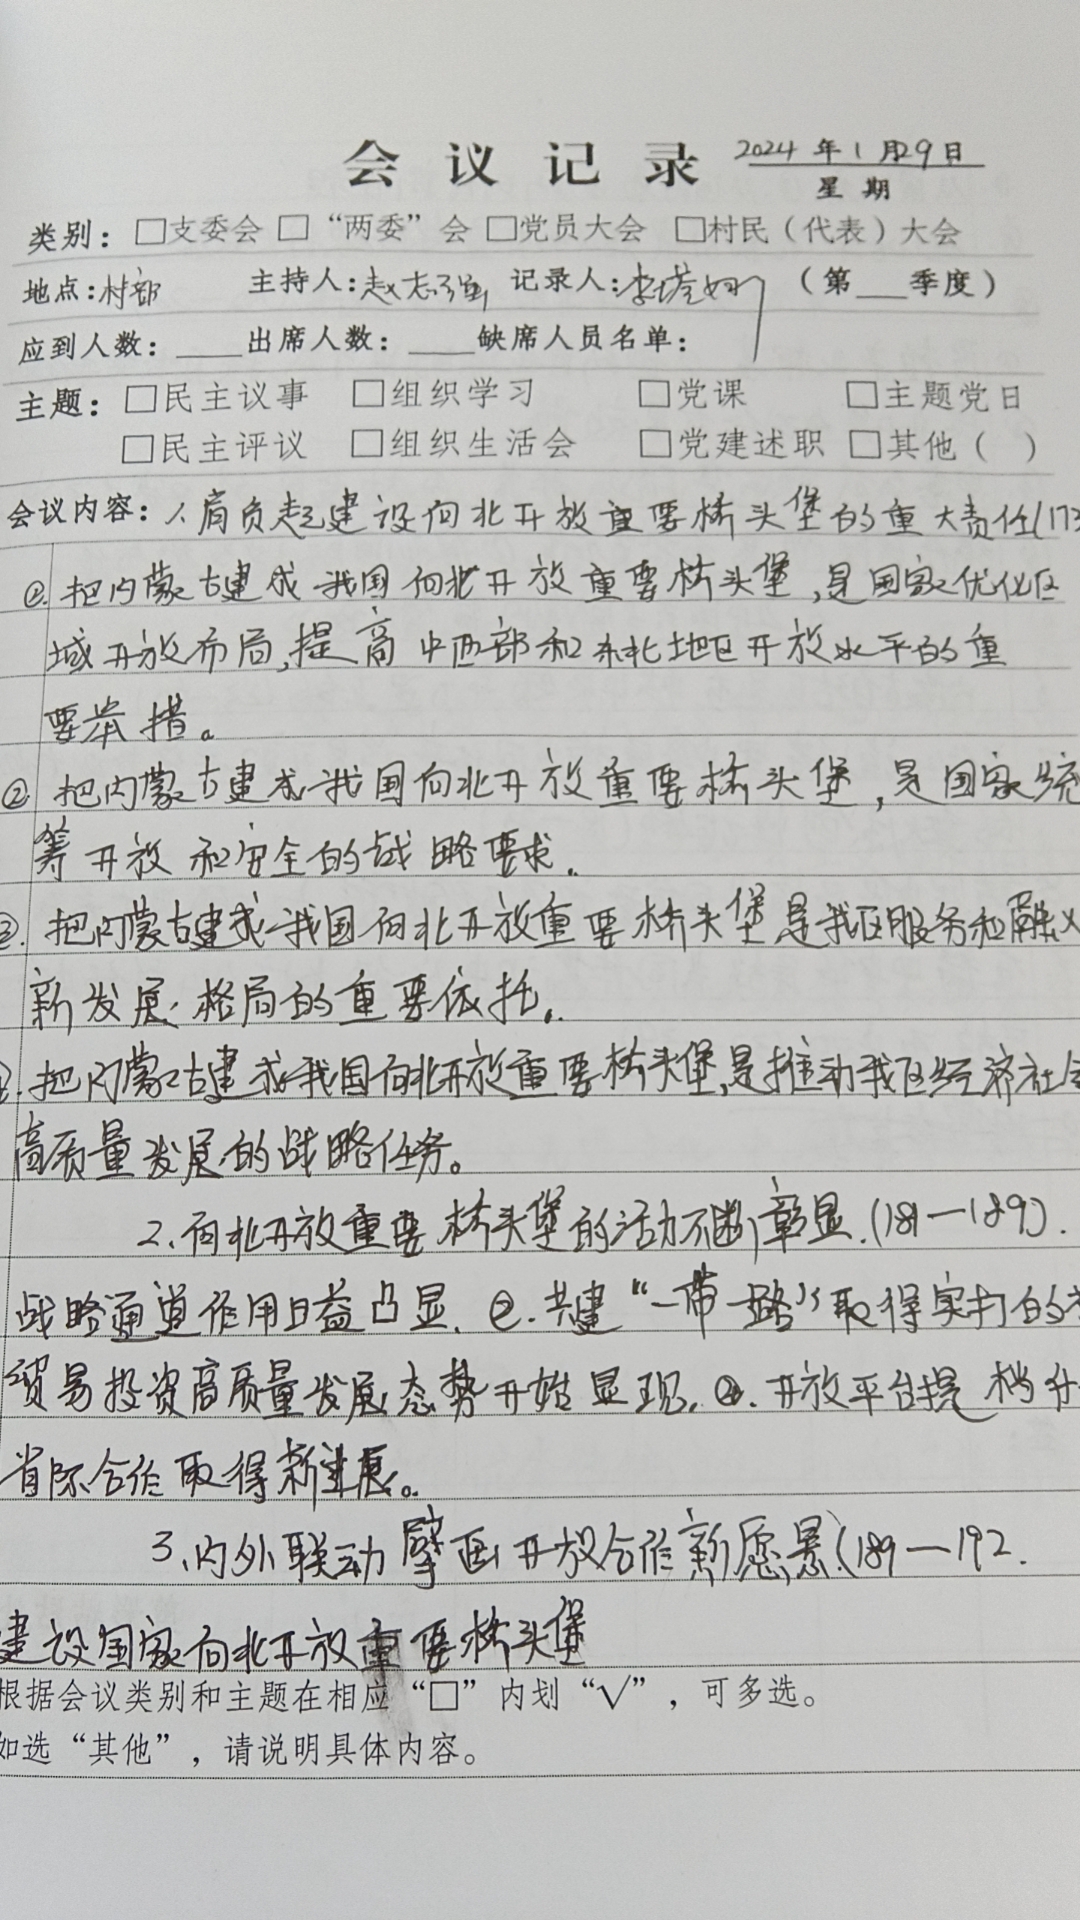 会议记录 2024年1月29日
星期
类别：□支委会 □“两委”会 □党员大会 □村民（代表）大会
地点：村部 主持人：赵志强 记录人：李 （第___季度）
应到人数：____出席人数：____缺席人员名单：
主题：□民主议事 □组织学习 □党课 □主题党日
□民主评议 □组织生活会 □党建述职 □其他（ ）
会议内容：1、肩负起建设向北开放重要桥头堡的重大责任(173
①.把内蒙古建成我国向北开放重要桥头堡,是国家优化区
域开放布局,提高中西部和东北地区开放水平的重
要举措。
②.把内蒙古建成我国向北开放重要桥头堡,是国家统
筹开放和安全的战略要求.
③.把内蒙古建成我国向北开放重要桥头堡是我区服务和融入
新发展格局的重要依托.
.把内蒙古建成我国向北开放重要桥头堡,是推动我区经济社会
高质量发展的战略任务。
2、向北开放重要桥头堡的活力不断彰显.(181—189).
战略通道作用日益凸显. ②.共建“一带一路”取得实打的
贸易投资高质量发展态势开始显现. ④.开放平台提档升
省际合作取得新进展。
3、内外联动擘画开放合作新愿景(189—192.
建设国家向北开放重要桥头堡
根据会议类别和主题在相应“□”内划“√”，可多选。
如选“其他”，请说明具体内容。